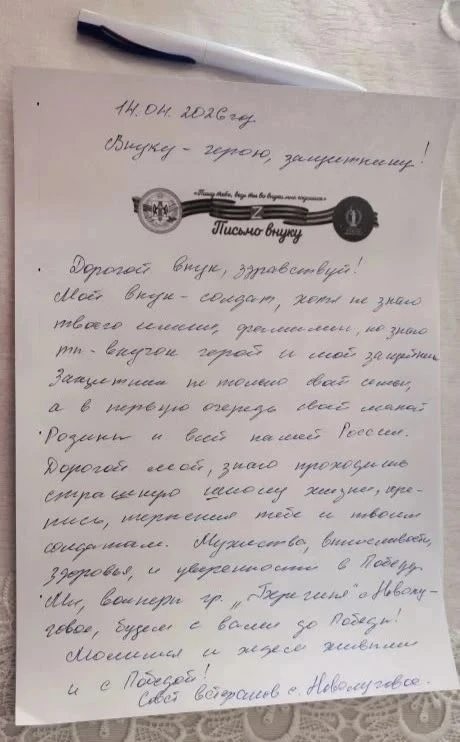 14.04.2026 год
Внуку - герою, защитнику!
«Пишу тебе, ведь ты во внуки мне годишься»
Z
Письмо внуку
Дорогой внук, здравствуй!
Мой внук - солдат, хотя не знаю
твоего имени, фамилии, но знаю
ты - внучок герой и мой защитник
Защитник не только своей семьи,
а в первую очередь своей малой
Родины и всей нашей России.
Дорогой мой, знаю проходишь
страшную школу жизни, кре-
пись, терпения тебе и твоим
солдатам. Мужества, выносливости,
здоровья, и уверенности в Победу.
Мы, волонтеры гр. „Берегиня" с Новолу-
говое, будем с вами до Победы!
Молимся и ждем живыми
и с Победой!
Совет ветеранов с. Новолуговое.